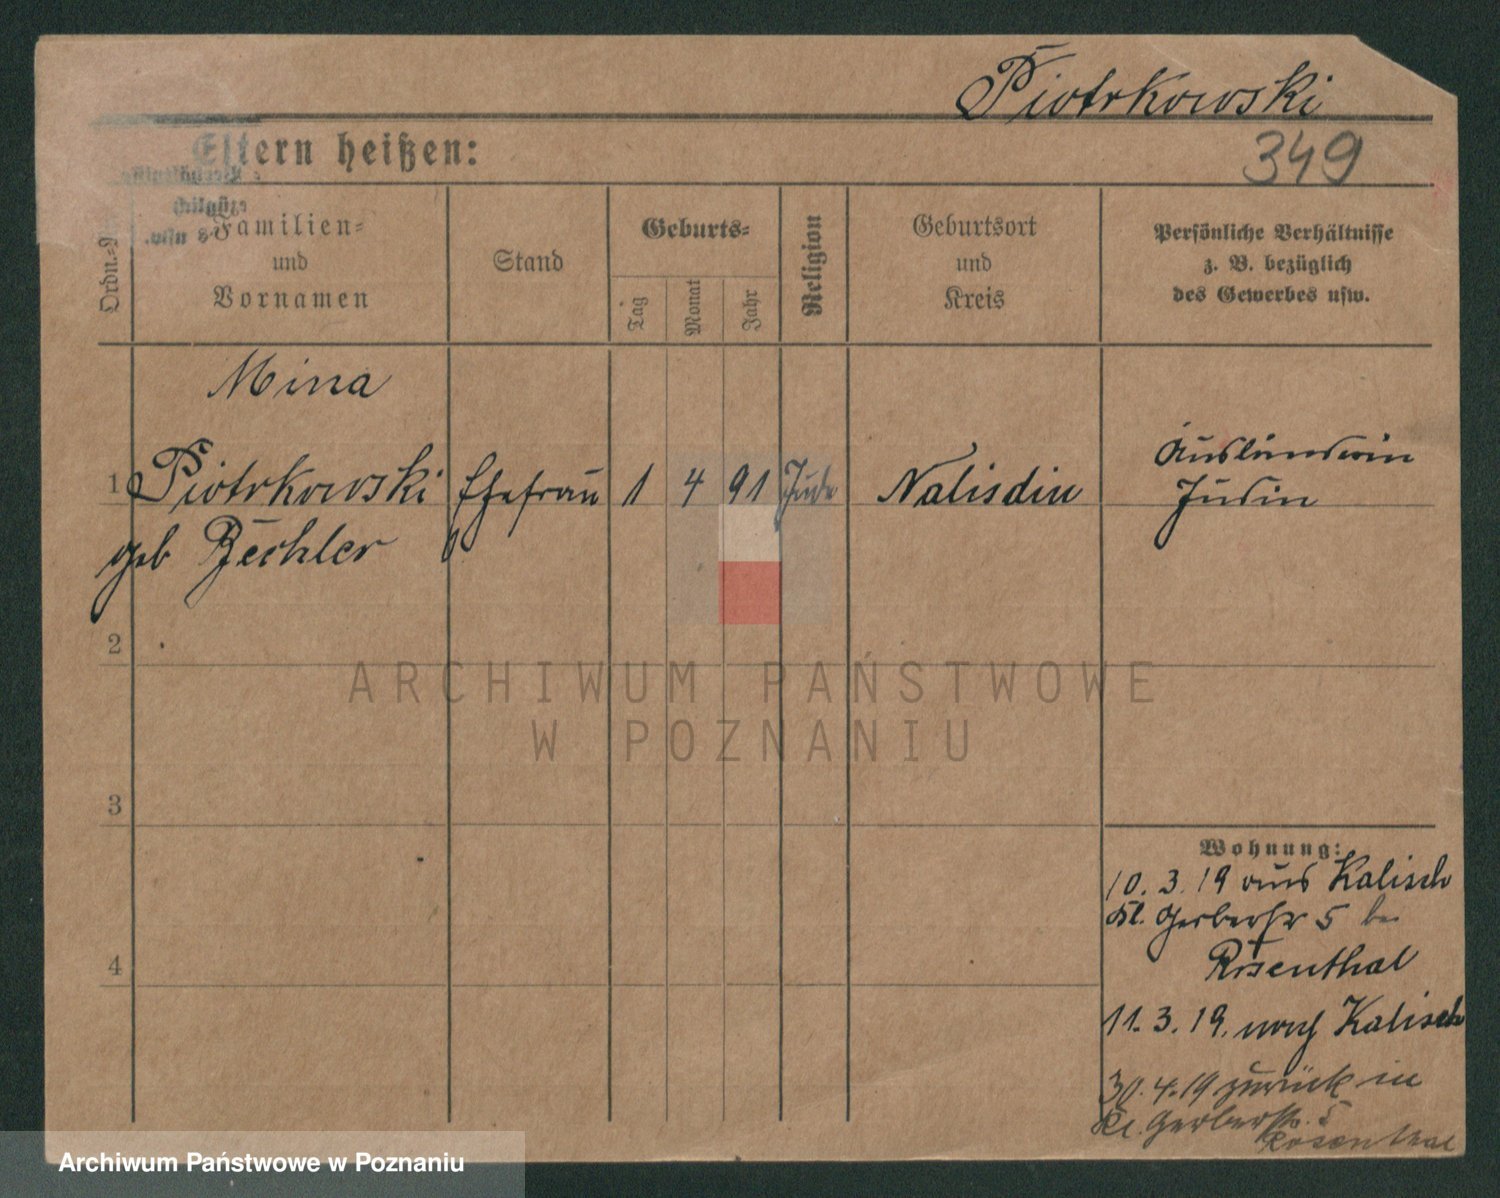 Piotrkowski
Eltern heißen:
349
Ordn.-
Familien-
und
Vornamen
Stand
Geburts-
Tag
Monat
Jahr
Religion
Geburtsort
und
Kreis
Persönliche Verhältnisse
z. B. bezüglich
des Gewerbes usw.
Mina
1 Piotrkowski Ehefrau 1 4 91 Jude Nalisdin Ausländerin
Jüdin
geb Bechler
2
3
4
Wohnung:
10. 3. 19 aus Kalisch
Kl. Gerberstr 5 bei
Rosenthal
11. 3. 19. nach Kalisch
30. 4. 19 zurück in
Kl. Gerberstr. 5
Rosenthal
ARCHIWUM PAŃSTWOWE
W POZNANIU
Archiwum Państwowe w Poznaniu